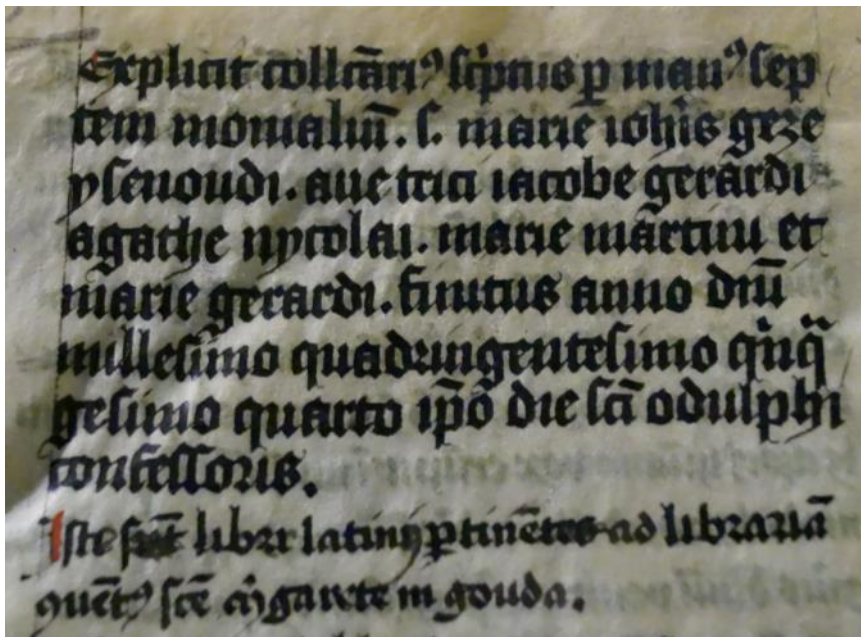 Explicit collcāriꝰ scⁱptus ꝑ manꝰ sep
tem monialiū. s. marie ioh̄is geze
ysenoudi. aue trici iacobe gerardi
agathe nycolai. marie mārtini et
marie gerardi. finitus anno dn̄i
millesimo quadringentesimo qⁱnqᵃ
gesimo quarto ip̄o die sc̄i odulphi
confessoris.
Iste libri latini ꝑtinētes ad librariā
ꝯuētꝰ sc̄e garete in gouda.